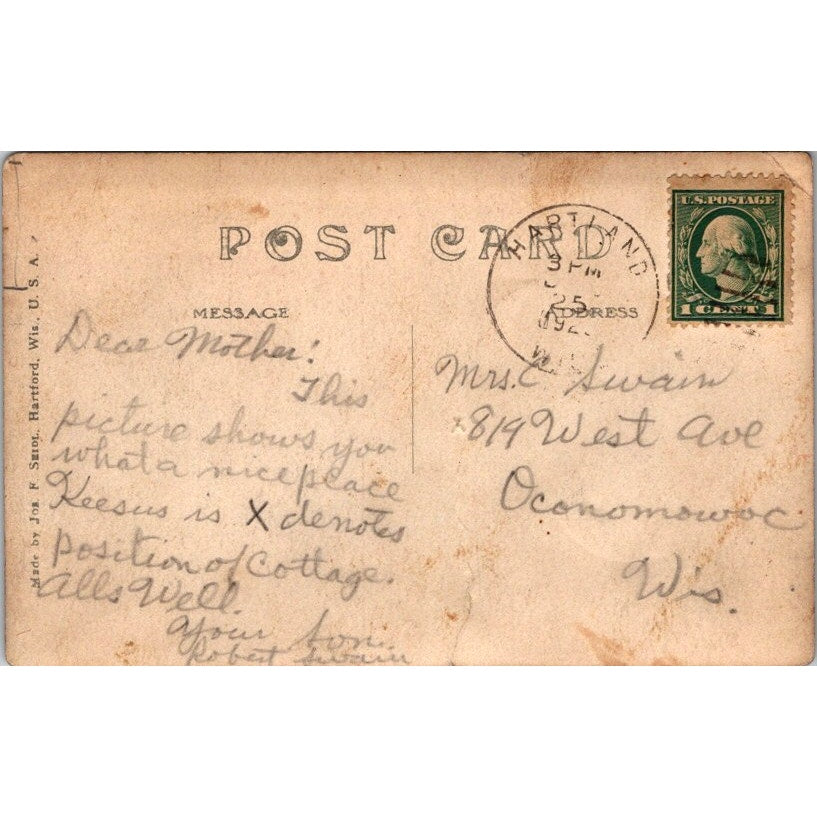 POST CARD
MESSAGE
ADDRESS
Made by Jos. F. Seidl, Hartford, Wis., U. S. A.
HARTLAND
3 PM
25
192
WIS
U.S. POSTAGE
1 CENT 1
Dear Mother!
This
picture shows you
what a nice place
Keesus is X denotes
position of Cottage.
Alls Well.
Your Son.
Robert Swain
Mrs. C Swain
819 West Ave
Oconomowoc
Wis.